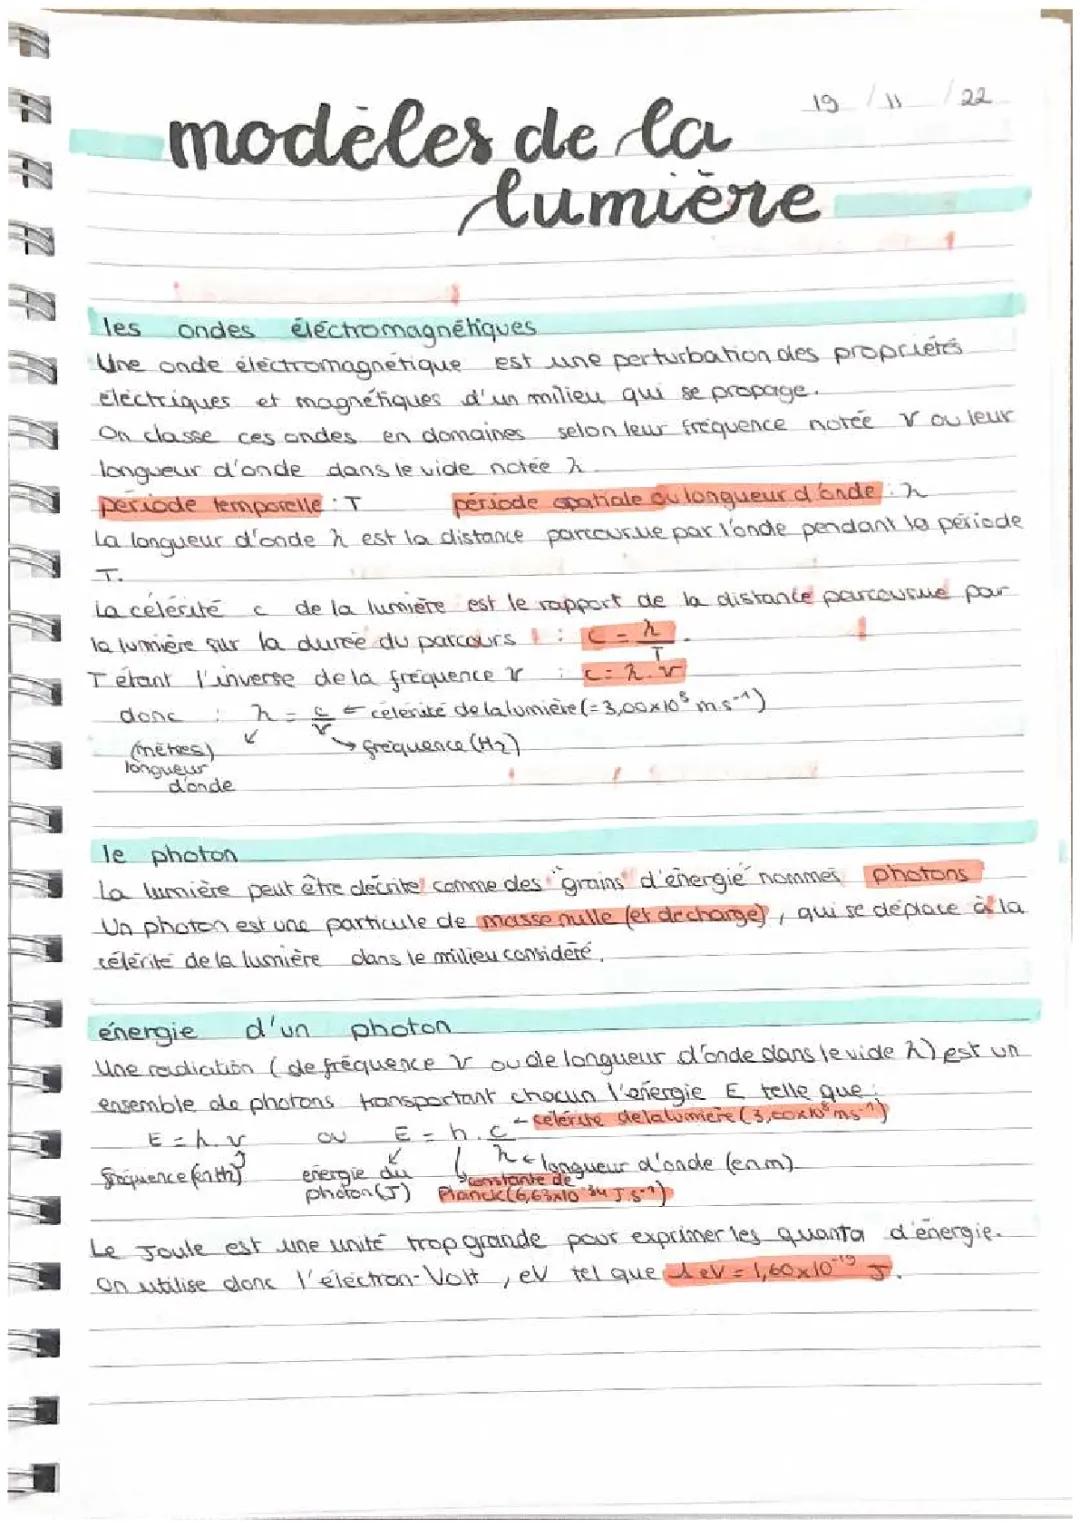 19 / 11 / 22
modèles de la
lumière
les ondes éléctromagnétiques
Une onde éléctromagnétique est une perturbation des propriétés
éléctriques et magnétiques d'un milieu qui se propage.
On classe ces ondes en domaines selon leur fréquence notée ν ou leur
longueur d'onde dans le vide notée λ.
période temporelle : T période spatiale ou longueur d'onde : λ
La longueur d'onde λ est la distance parcourue par l'onde pendant la période
T.
La célérité c de la lumière est le rapport de la distance parcourue par
la lumière sur la durée du parcours : c = λ/T.
T étant l'inverse de la fréquence ν : c = λ.ν
donc : λ = c/ν ← célérité de la lumière (= 3,00×10⁸ m.s⁻¹)
(mètres) → fréquence (Hz)
longueur
d'onde
le photon
La lumière peut être décrite comme des "grains" d'énergie nommés photons
Un photon est une particule de masse nulle (et de charge), qui se déplace à la
célérité de la lumière dans le milieu considéré.
énergie d'un photon
Une radiation (de fréquence ν ou de longueur d'onde dans le vide λ) est un
ensemble de photons transportant chacun l'énergie E telle que :
E = h.ν ou E = h.c/λ ← célérité de la lumière (3,00×10⁸ m.s⁻¹)
fréquence (en Hz) énergie du ← longueur d'onde (en m)
photon (J) constante de
Planck (6,63×10⁻³⁴ J.s⁻¹)
Le Joule est une unité trop grande pour exprimer les quanta d'énergie.
On utilise donc l'éléctron-Volt, eV tel que 1 eV = 1,60×10⁻¹⁹ J.